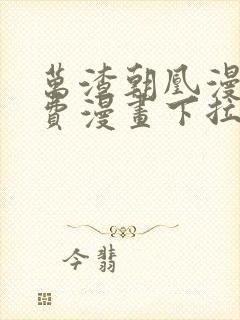 萬渣朝凰漫
費漫畫下拉
今翡